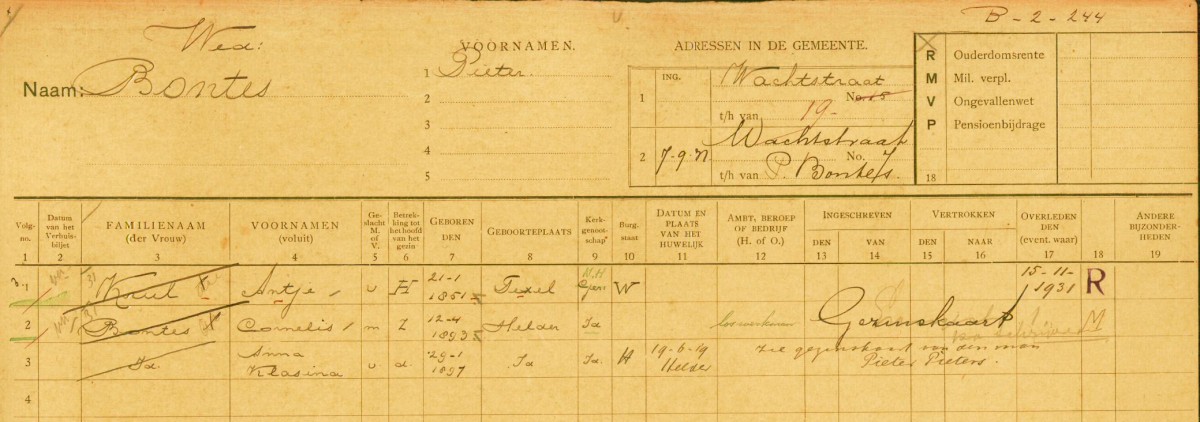 B - 2 - 244
Wed:
Naam: Bontes
VOORNAMEN.
1 Pieter.
2
3
4
5
ADRESSEN IN DE GEMEENTE.
ING.
1 Wachtstraat
No. 18
t/h van 19-
2 7-9-21 Wachtstraat
No. 7
t/h van P. Bontes.
R Ouderdomsrente
M Mil. verpl.
V Ongevallenwet
P Pensioenbijdrage
18
Volg-no. Datum van het Verhuis-biljet FAMILIENAAM (der Vrouw) VOORNAMEN (voluit) Ge-slacht M. of V. Betrek-king tot het hoofd van het gezin GEBOREN DEN GEBOORTEPLAATS Kerk-genoot-schap Burg. staat DATUM EN PLAATS VAN HET HUWELIJK AMBT, BEROEP OF BEDRIJF (H. of O.) INGESCHREVEN VERTROKKEN OVERLEDEN DEN (event. waar) ANDERE BIJZONDER-HEDEN
DEN VAN DEN NAAR
1 2 3 4 5 6 7 8 9 10 11 12 13 14 15 16 17 18 19
1 Kuul Antje v H 21-1 1851 Texel N.H Ger: W 15-11-1931 R
2 Bontes Cornelis m Z 12-4 1893 Helder Id Gezinskaart M
3 Id. Anna Klasina v d. 29-1 1897 Id Id. H 19-6-19 Helder zie gezinskaart van den man Pieter Pieters.
4